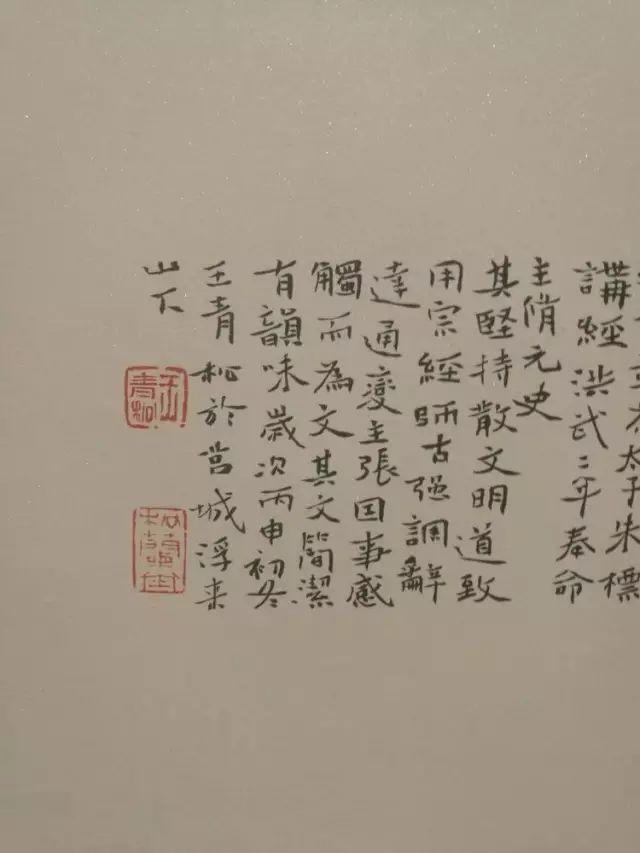 太子朱標
講經洪武二年奉命
主脩元史
其堅持散文明道致
用宗經師古强調辭
達通變主張因事感
觸而為文其文簡潔
有韻味歲次丙申初冬
王青松於莒城浮来
山下
王青松